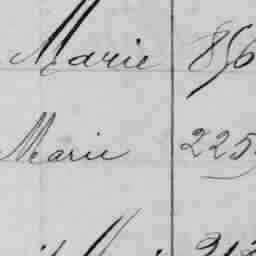 Marie 856
Marie 225